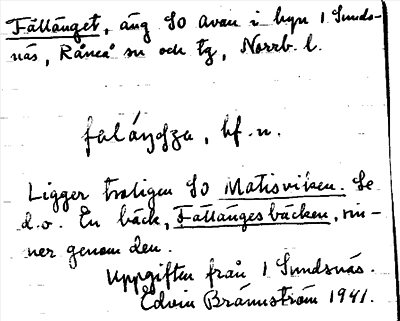 Fällänget, äng SO avan i byn 1 Sunds-
näs, Råneå sn och tg, Norrb. l.
bf. n.
Ligger troligen SO Matisviken. Se
d.o. En bäck, Fällängesbäcken, rin-
ner genom den.
Uppgiften från 1 Sundsnäs.
Edvin Brännström 1941.